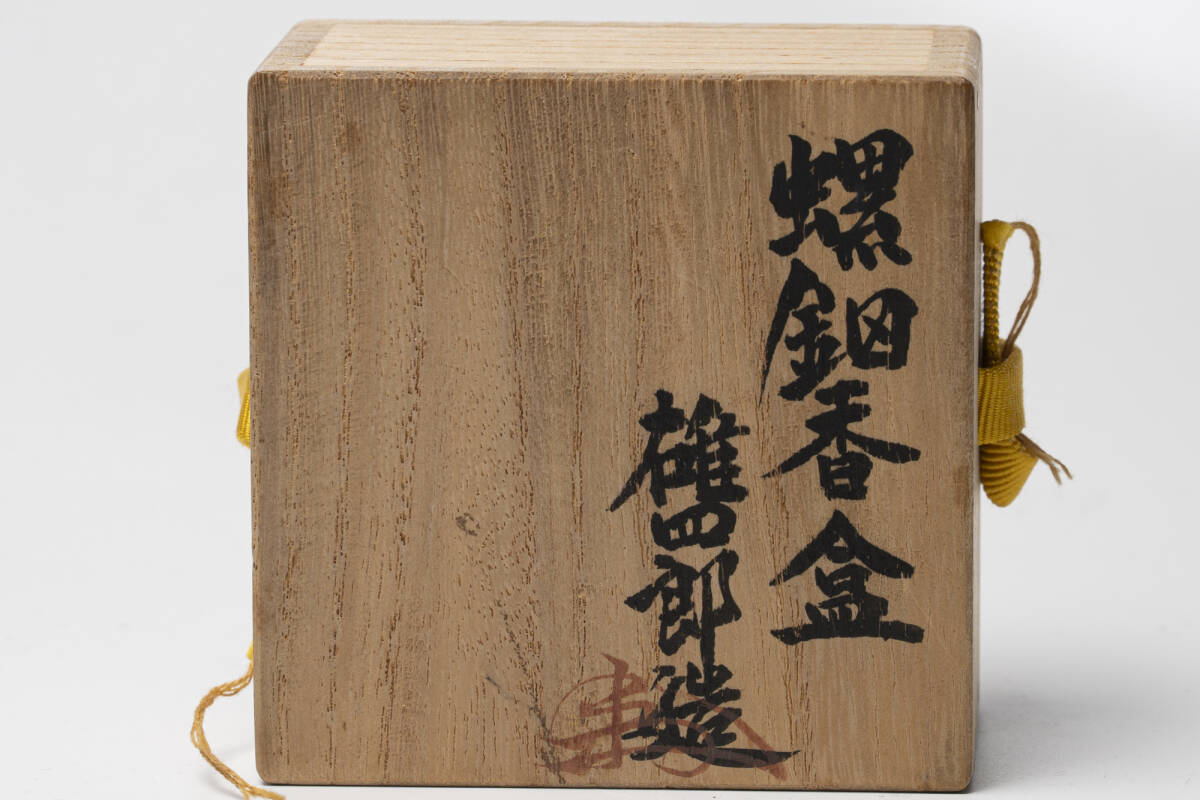 螺鈿香盒
雄四郎造